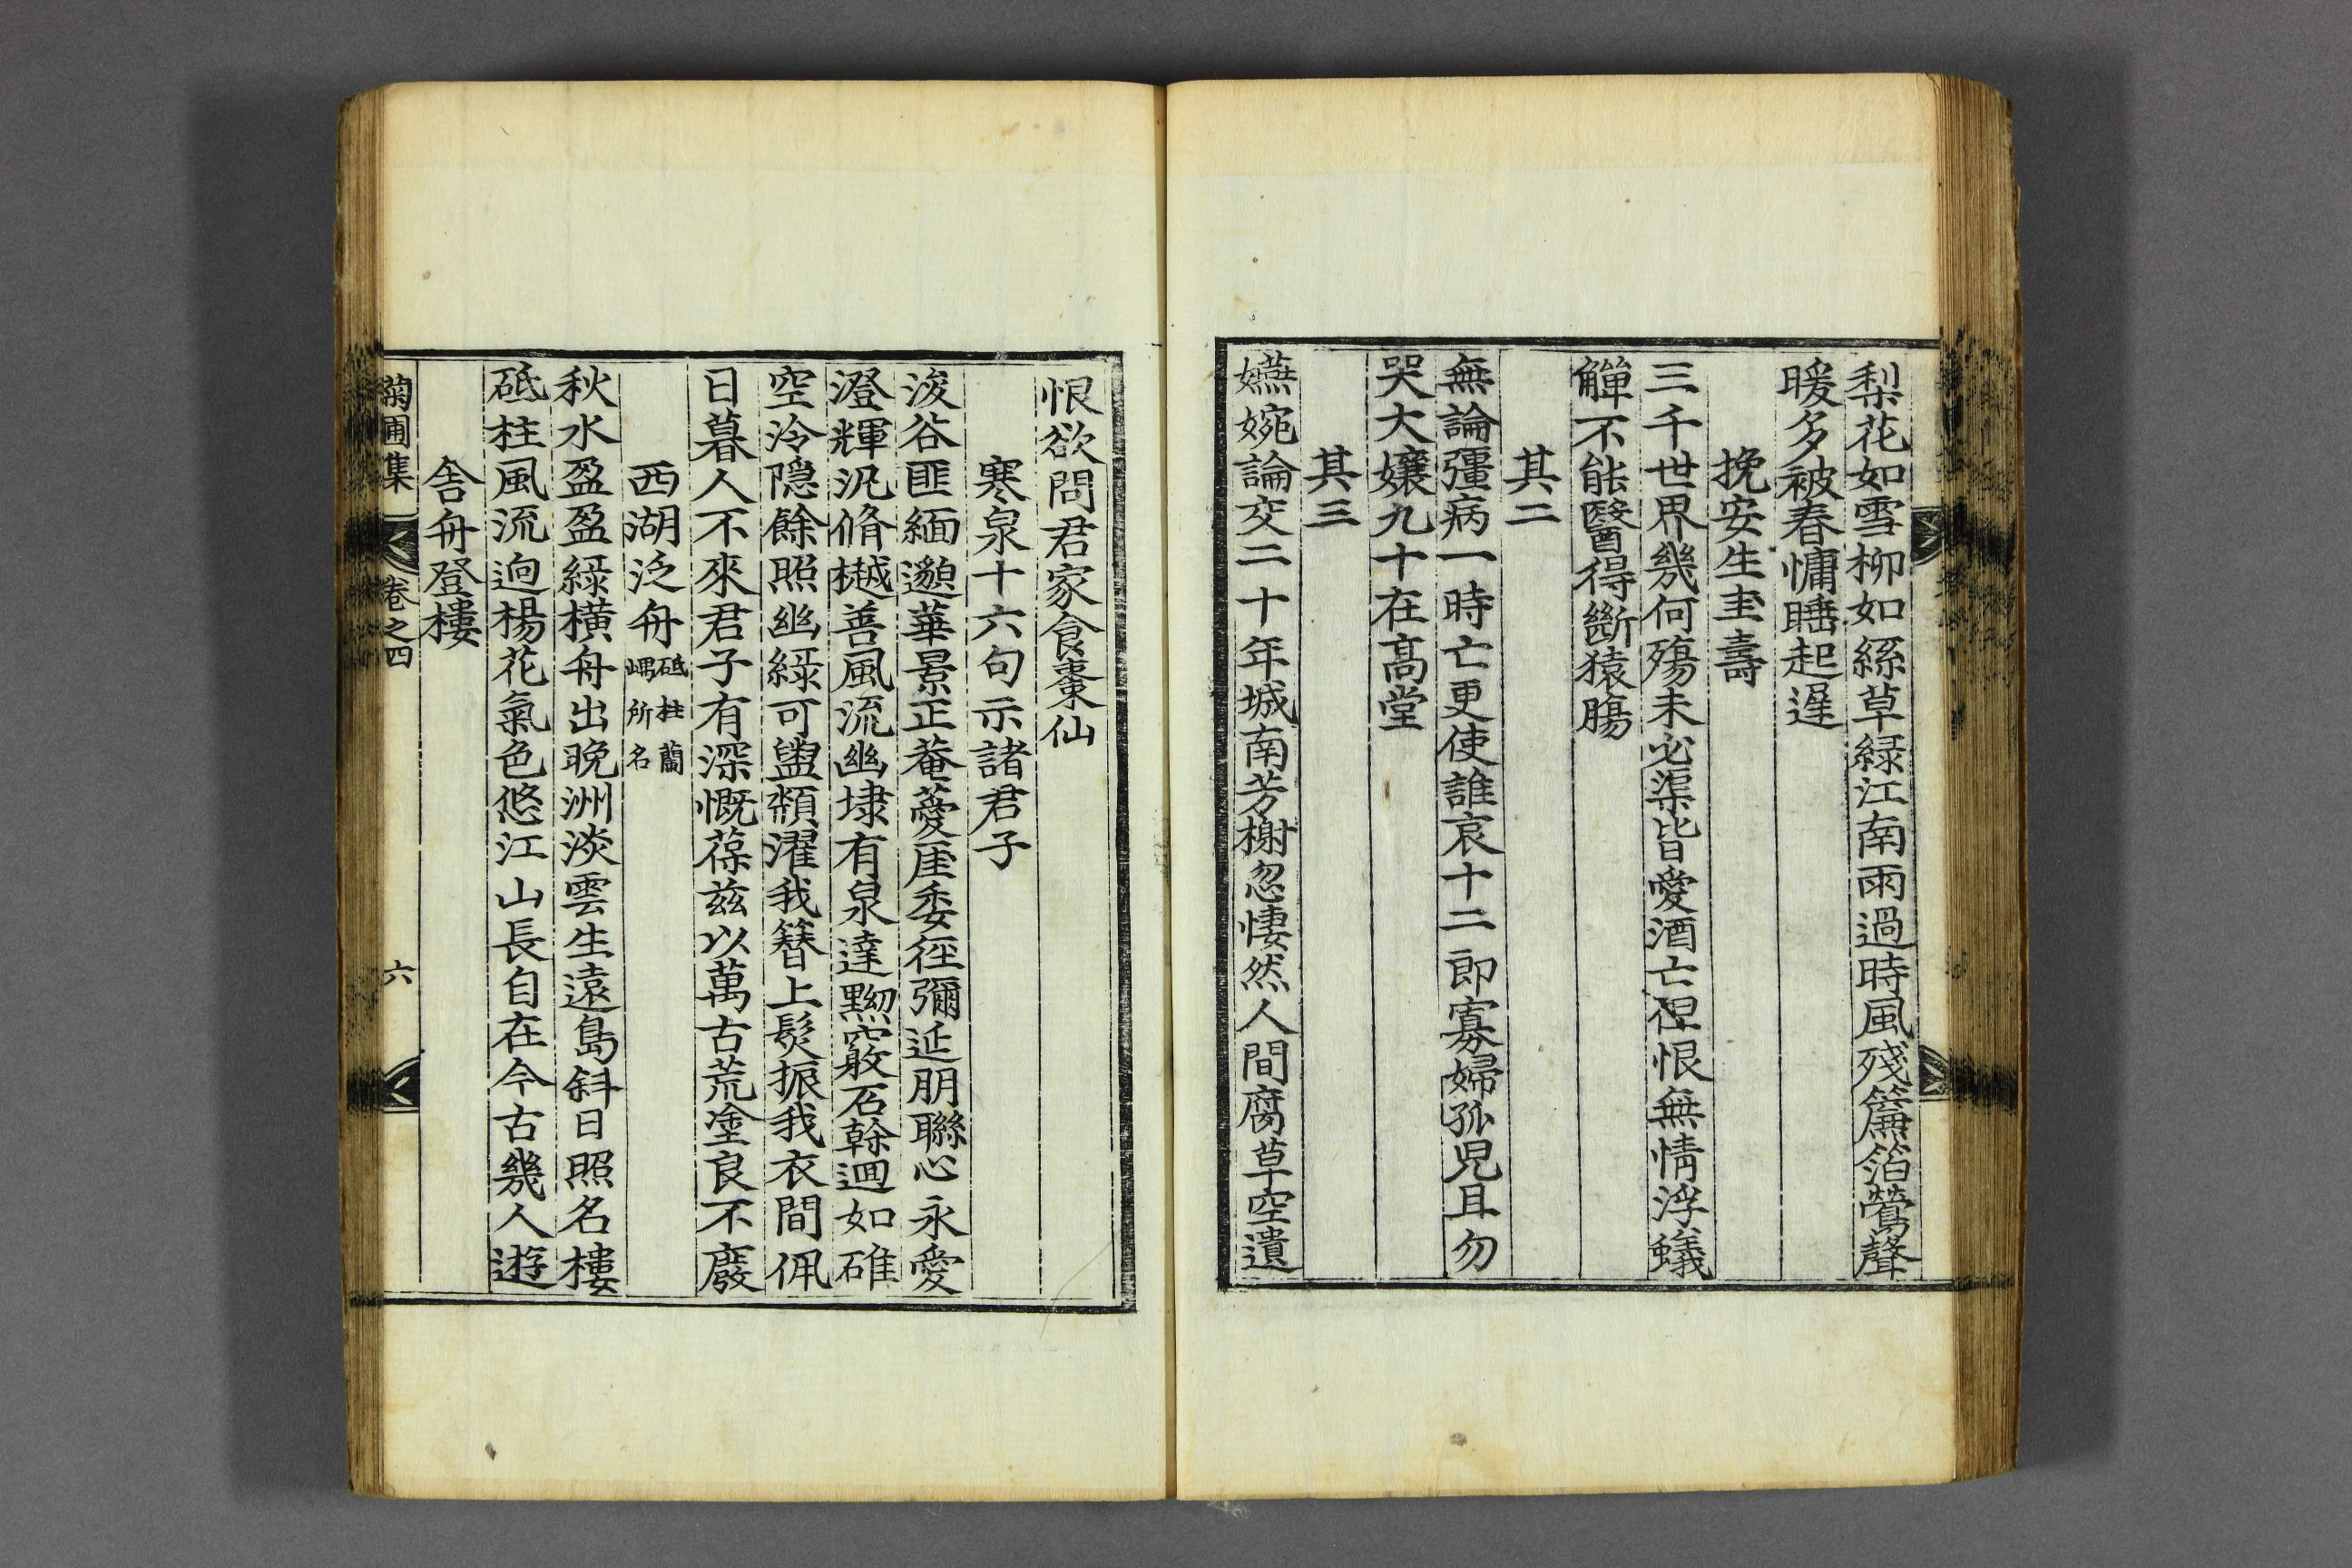 梨花如雪柳如絲草緑江南雨過時風殘簾箔鶯聲
暖多被春慵睡起遲
挽安生圭壽
三千世界幾何殤未必渠皆愛酒亡徎恨無情浮蟻
觶不能醫得斷猿腸
其二
無論彊病一時亡更使誰哀十二郎寡婦孤兒且勿
哭大孃九十在高堂
其三
嬿婉論交二十年城南芳榭忽悽然人間腐草空遺
恨欲問君家食棗仙
寒泉十六句示諸君子
浚谷匪緬邈華景正菴薆厓委徑彌延朋聯心永愛
澄輝汎脩樾善風流幽埭有泉達黝窾石榦迴如碓
空泠隠餘照幽綠可盥頮濯我簪上髮振我衣間佩
日暮人不來君子有深慨葆兹以萬古荒塗良不廢
西湖泛舟砥柱蘭嵎所名
秋水盈盈綠橫舟出晩洲淡雲生遠島斜日照名樓
砥柱風流逈楊花氣色悠江山長自在今古幾人遊
舎舟登樓
菊圃集 卷之四 六